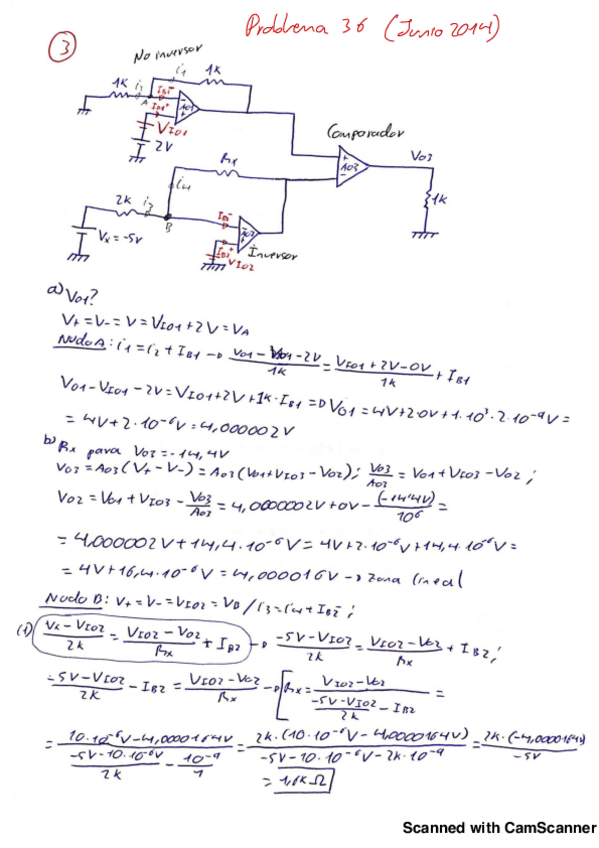 Problema 36 (Junio 2014)
3
No inversor
1K
i2
A
IB1-
IB1+
i1
1K
AO1
VIO1
2V
Comparador
+
-
AO3
VO3
1K
Rx
i4
2K
i3
B
Vx=-5V
IB2-
IB2+
AO2
VIO2
Inversor
a) VO1?
V+=V-=V=VIO1+2V=VA
Nudo A: i1=i2+IB1 → (VO1-VIO1-2V)/1K = (VIO1+2V-0V)/1K + IB1
VO1-VIO1-2V=VIO1+2V+1K·IB1 => VO1=4V+2·0V+1·10³·2·10⁻⁹V=
=4V+2·10⁻⁶V=4,000002V
b) Rx para VO3=-14,4V
VO3=AO3(V+-V-)=AO3(VO1+VIO3-VO2); VO3/AO3=VO1+VIO3-VO2;
VO2=VO1+VIO3-VO3/AO3=4,0000002V+0V-(-14,4V)/10⁶=
=4,000002V+14,4·10⁻⁶V=4V+2·10⁻⁶V+14,4·10⁻⁶V=
=4V+16,4·10⁻⁶V=4,000016V → Zona lineal
Nudo B: V+=V-=VIO2=VB/i3=i4+IB2-;
(1) (Vx-VIO2)/2K=(VIO2-VO2)/Rx+IB2 → (-5V-VIO2)/2K=(VIO2-VO2)/Rx+IB2;
(-5V-VIO2)/2K-IB2=(VIO2-VO2)/Rx → Rx=(VIO2-VO2)/((-5V-VIO2)/2K-IB2)=
=(10·10⁻⁶V-4,0000164V)/((-5V-10·10⁻⁶V)/2K-10⁻⁹/1)=2K·(10·10⁻⁶V-4,0000164V)/(-5V-10·10⁻⁶V-2K·10⁻⁹)=2K·(-4,0000164V)/-5V
=1,6KΩ
Scanned with CamScanner